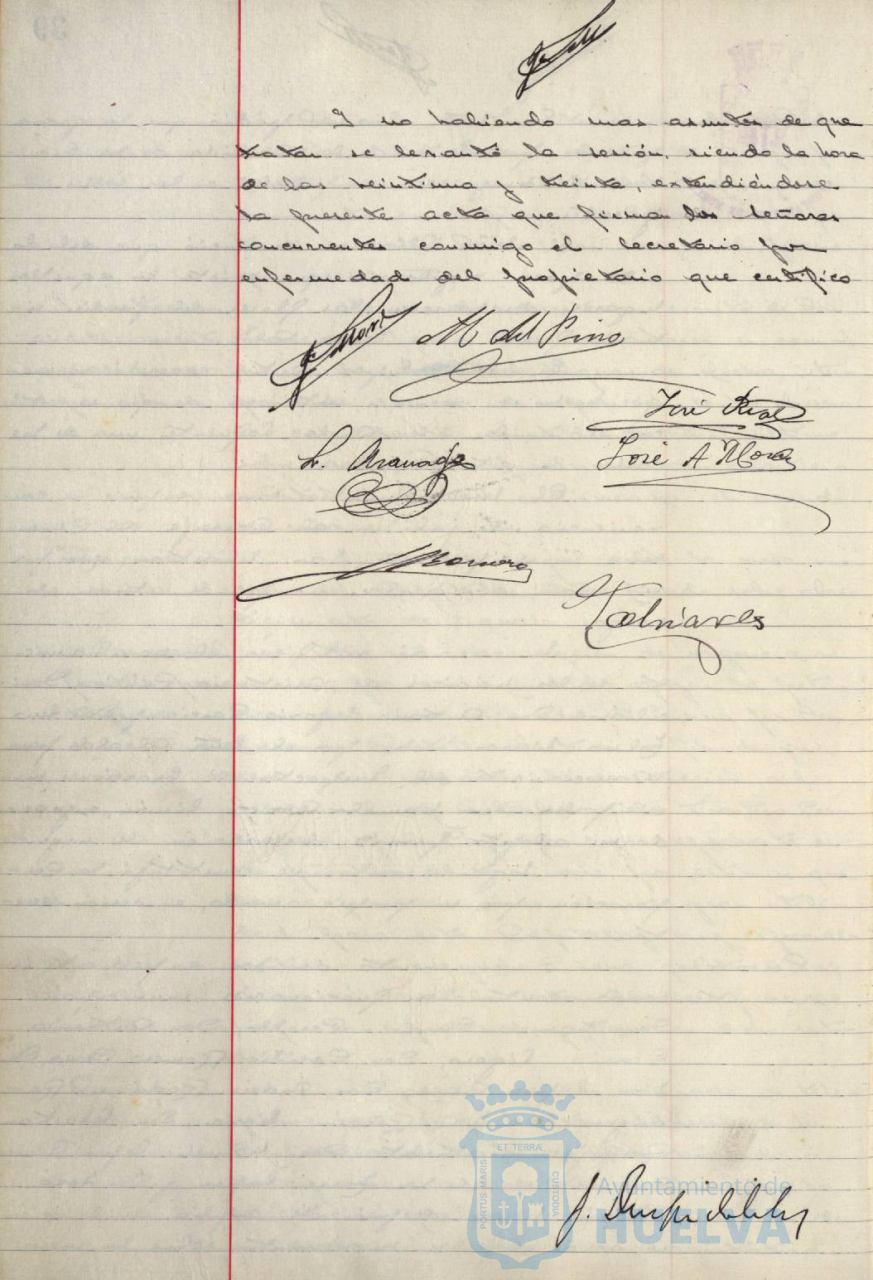 Y no habiendo mas asuntos de que
tratar se levantó la sesión, siendo la hora
de las veintiuna y treinta, extendiéndose
la presente acta que firman los señores
concurrentes conmigo el Secretario por
enfermedad del propietario que certifico
M del Pino
José
José A Mora
Romero
ET TERRÆ
PORTUS MARIS
CUSTODIA
Ayuntamiento de
HUELVA